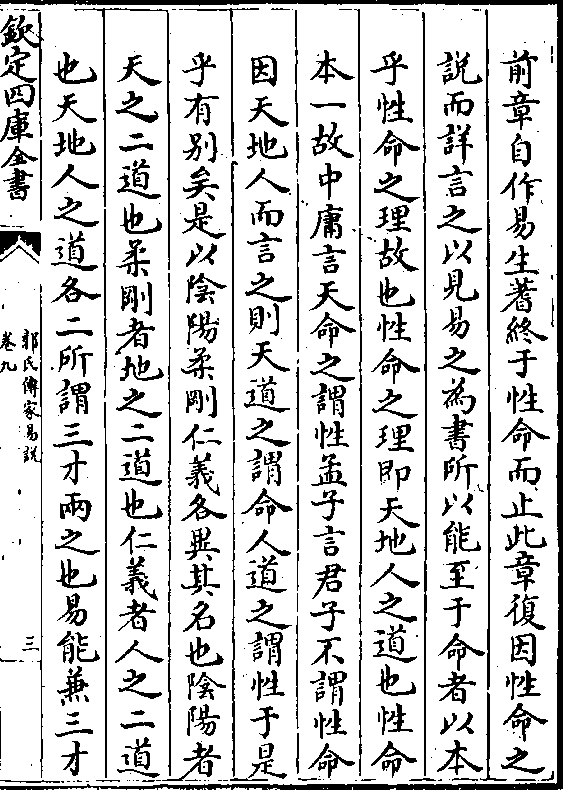 前章自作易生蓍終于性命而止此章復因性命之
說而詳言之以見易之為書所以能至于命者以本
乎性命之理故也性命之理即天地人之道也性命
本一故中庸言天命之謂性孟子言君子不謂性命
因天地人而言之則天道之謂命人道之謂性于是
乎有别矣是以陰陽柔剛仁義各異其名也陰陽者
天之二道也柔剛者地之二道也仁義者人之二道
也天地人之道各二所謂三才兩之也易能兼三才
欽定四庫全書
郭氏傳家易說
卷九
三